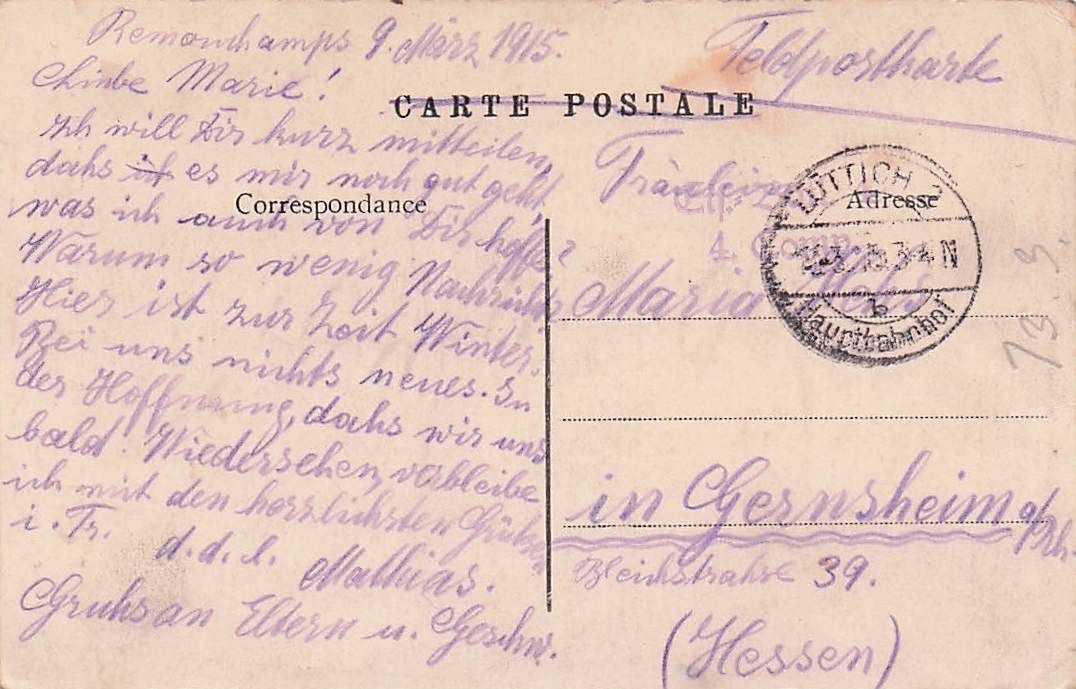 Remouchamps 9. März 1915.
Liebe Marie!
Ich will Dir kurz mitteilen,
dahs es mir noch gut geht,
was ich auch von Dir hoffe?
Warum so wenig Nachricht.
Hier ist zur Zeit Winter.
Bei uns nichts neues. In
der Hoffnung, dahs wir uns
bald Wiedersehen, verbleibe
ich mit den herzlichsten Grühsen
i. Tr.
d. d. l. Mathias.
Gruhs an Eltern u. Geschw.
CARTE POSTALE
Correspondance
Feldpostkarte
Adresse
Fräulein
4. Comp.
Maria
in Gernsheim a/Rh.
Bleichstrahse 39.
(Hessen)
LÜTTICH 2
b
Hauptbahnhof